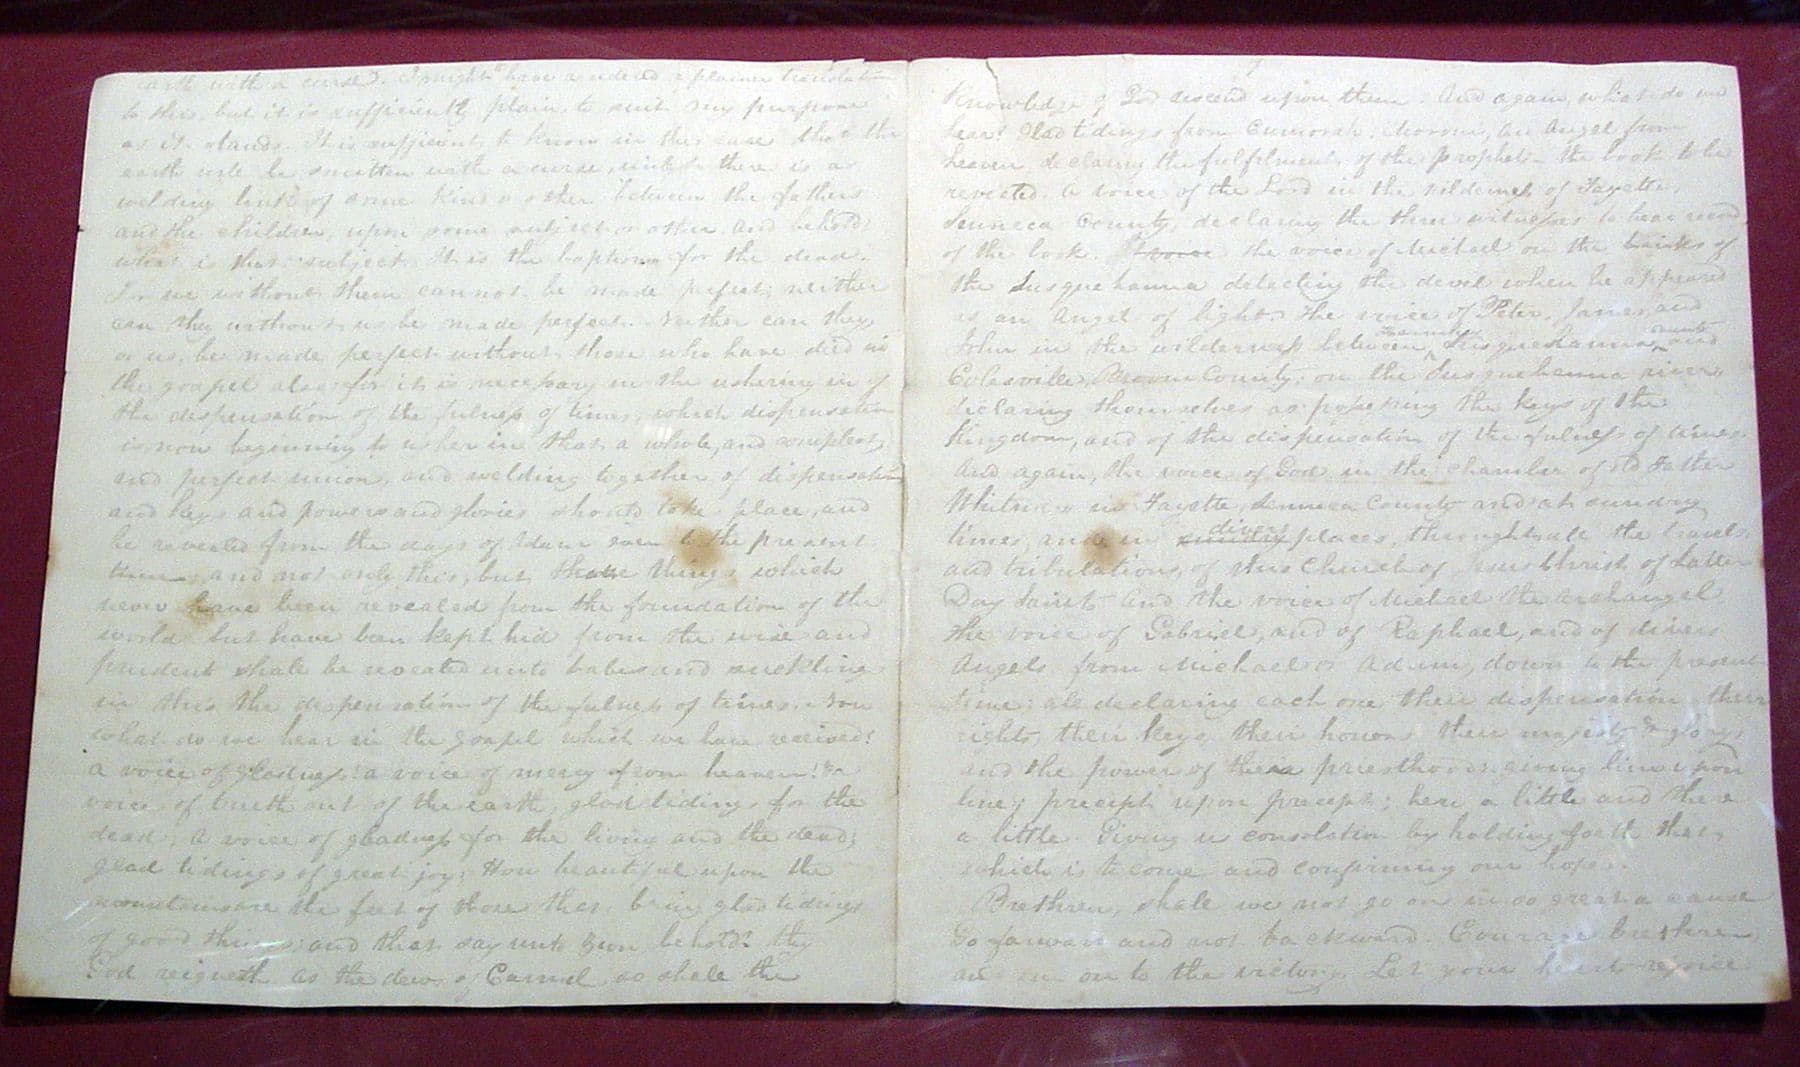 earth with a curse. I might have rendered a plainer translation
to this, but it is sufficiently plain to suit my purpose
as it stands. It is sufficient to know in this case that the
earth will be smitten with a curse, unless there is a
welding link of some kind or other between the fathers
and the children, upon some subject or other. And behold,
what is that subject. It is the baptism for the dead.
For we without them cannot be made perfect; neither
can they without us be made perfect. Neither can they
or us, be made perfect without those who have died in
the gospel also; for it is necessary in the ushering in of
the dispensation of the fulness of times; which dispensation
is now beginning to usher in that a whole, and compleat,
and perfect union, and welding together of dispensations
and keys and powers and glories should take place, and
be revealed from the days of Adam even to the present
time; and not only this, but those things which
never have been revealed from the foundation of the
world but have been kept hid from the wise and
prudent shall be revealed unto babes and sucklings
in this the dispensation of the fulness of times. Now
what do we hear in the gospel which we have received?
a voice of gladness! a voice of mercy from heaven! a
voice of truth out of the earth, glad tidings for the
dead; a voice of gladness for the living and the dead;
glad tidings of great joy; How beautiful upon the
mountains are the feet of those that bring glad tidings
of good things; and that say unto Zion, behold! thy
God reigneth as the dews of Carmel so shall the
Knowledge of God descend upon them. And again, what do we
hear? Glad tidings from Cumorah. Moroni, an Angel from
heaven declaring the fulfilment of the prophets— the book to be
revealed. A voice of the Lord in the wilderness of Fayette,
Senneca County, declaring the three witnesses to bear record
of the book. the voice of Michael on the banks of
the Susquehanna detecting the devil when he appeared
as an Angel of light. the voice of Peter, James, and
John in the wilderness between Harmony Susquehanna County and
Colesville, Broom County; on the Susquehanna river,
declaring themselves as possessing the keys of the
kingdom, and of the dispensation of the fulness of times.
And again, the voice of God in the chamber of old Father
Whitmer in Fayette, Senneca County and at sundry
times, and in divers sundry places, throughout all the travels
and tribulations, of this Church of Jesus Christ of Latter
Day Saints And the voice of Michael the archangel
the voice of Gabriel, and of Raphael, and of divers
Angels from Michael or Adam, down to the present
time; all declaring each one their dispensation, their
rights, their keys, their honors their majesty & glory,
and the power of their priesthood; giving line upon
line; precept upon precept; here a little and there
a little. Giving us consolation by holding forth that
which is to come and confirming our hope.
Brethren, shall we not go on in so great a cause
Go forward and not backward. Courage brethren,
and on on to the victory. Let your hearts rejoice